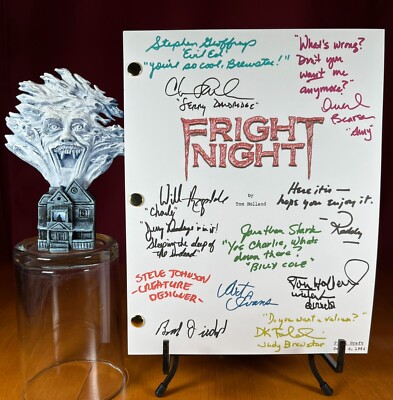 Stephen Geoffreys
'Evil Ed'
"You're so cool, Brewster!"
"What's wrong?
Don't you
want me
anymore?"
Amanda
Bearse
"Amy"
"JERRY DANDRIDGE"
FRIGHT
NIGHT
by
Tom Holland
Will
"Charley"
"Jerry Dandridge is in it!
Sleeping the sleep of
the Undead
Here it is—
hope you enjoy it.
Roddy
Jonathan Stark
"Yes Charlie, what's
down there?"
"BILLY COLE"
STEVE JOHNSON
-CREATURE
DESIGNER-
Art Evans
Tom Holland
writer
director
"Do you want a valium?"
Judy Brewster
Draft
1984